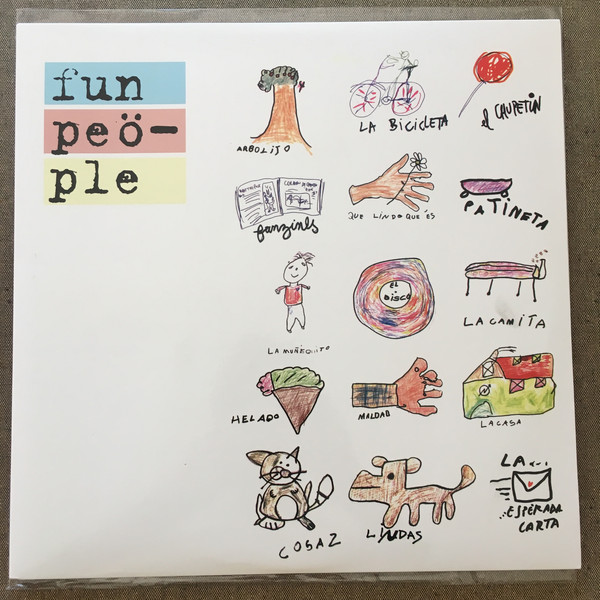 fun
peö-
ple
ARBOLIJO
LA BICICLETA
el CHUPETÍN
fanzines
QUE LINDO QUE ÉS
PATINETA
LA MUÑEQUITO
EL
DISCO
LA CAMITA
HELADO
MALDAD
LA CASA
COSAZ
LINDAS
LA...
ESPERADA
CARTA